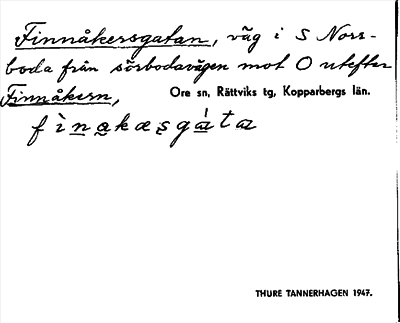 Finnåkersgatan, väg i S Norr-
boda från sörbodavägen mot O utefter
Finnåkern,
Ore sn, Rättviks tg, Kopparbergs län.
THURE TANNERHAGEN 1947.